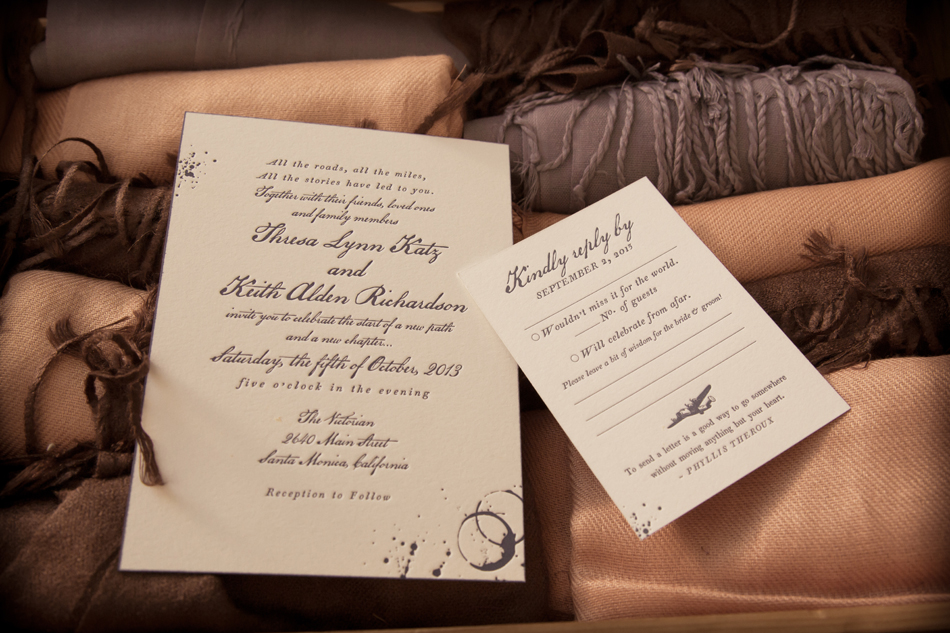 All the roads, all the miles,
All the stories have led to you.
Together with their friends, loved ones
and family members
Thresa Lynn Katz
and
Keith Alden Richardson
invite you to celebrate the start of a new path
and a new chapter...
Saturday, the fifth of October, 2013
five o'clock in the evening
The Victorian
2640 Main Street
Santa Monica, California
Reception to Follow
Kindly reply by
SEPTEMBER 2, 2013
Wouldn't miss it for the world.
No. of guests
Will celebrate from afar.
Please leave a bit of wisdom for the bride & groom!
To send a letter is a good way to go somewhere
without moving anything but your heart.
- PHYLLIS THEROUX